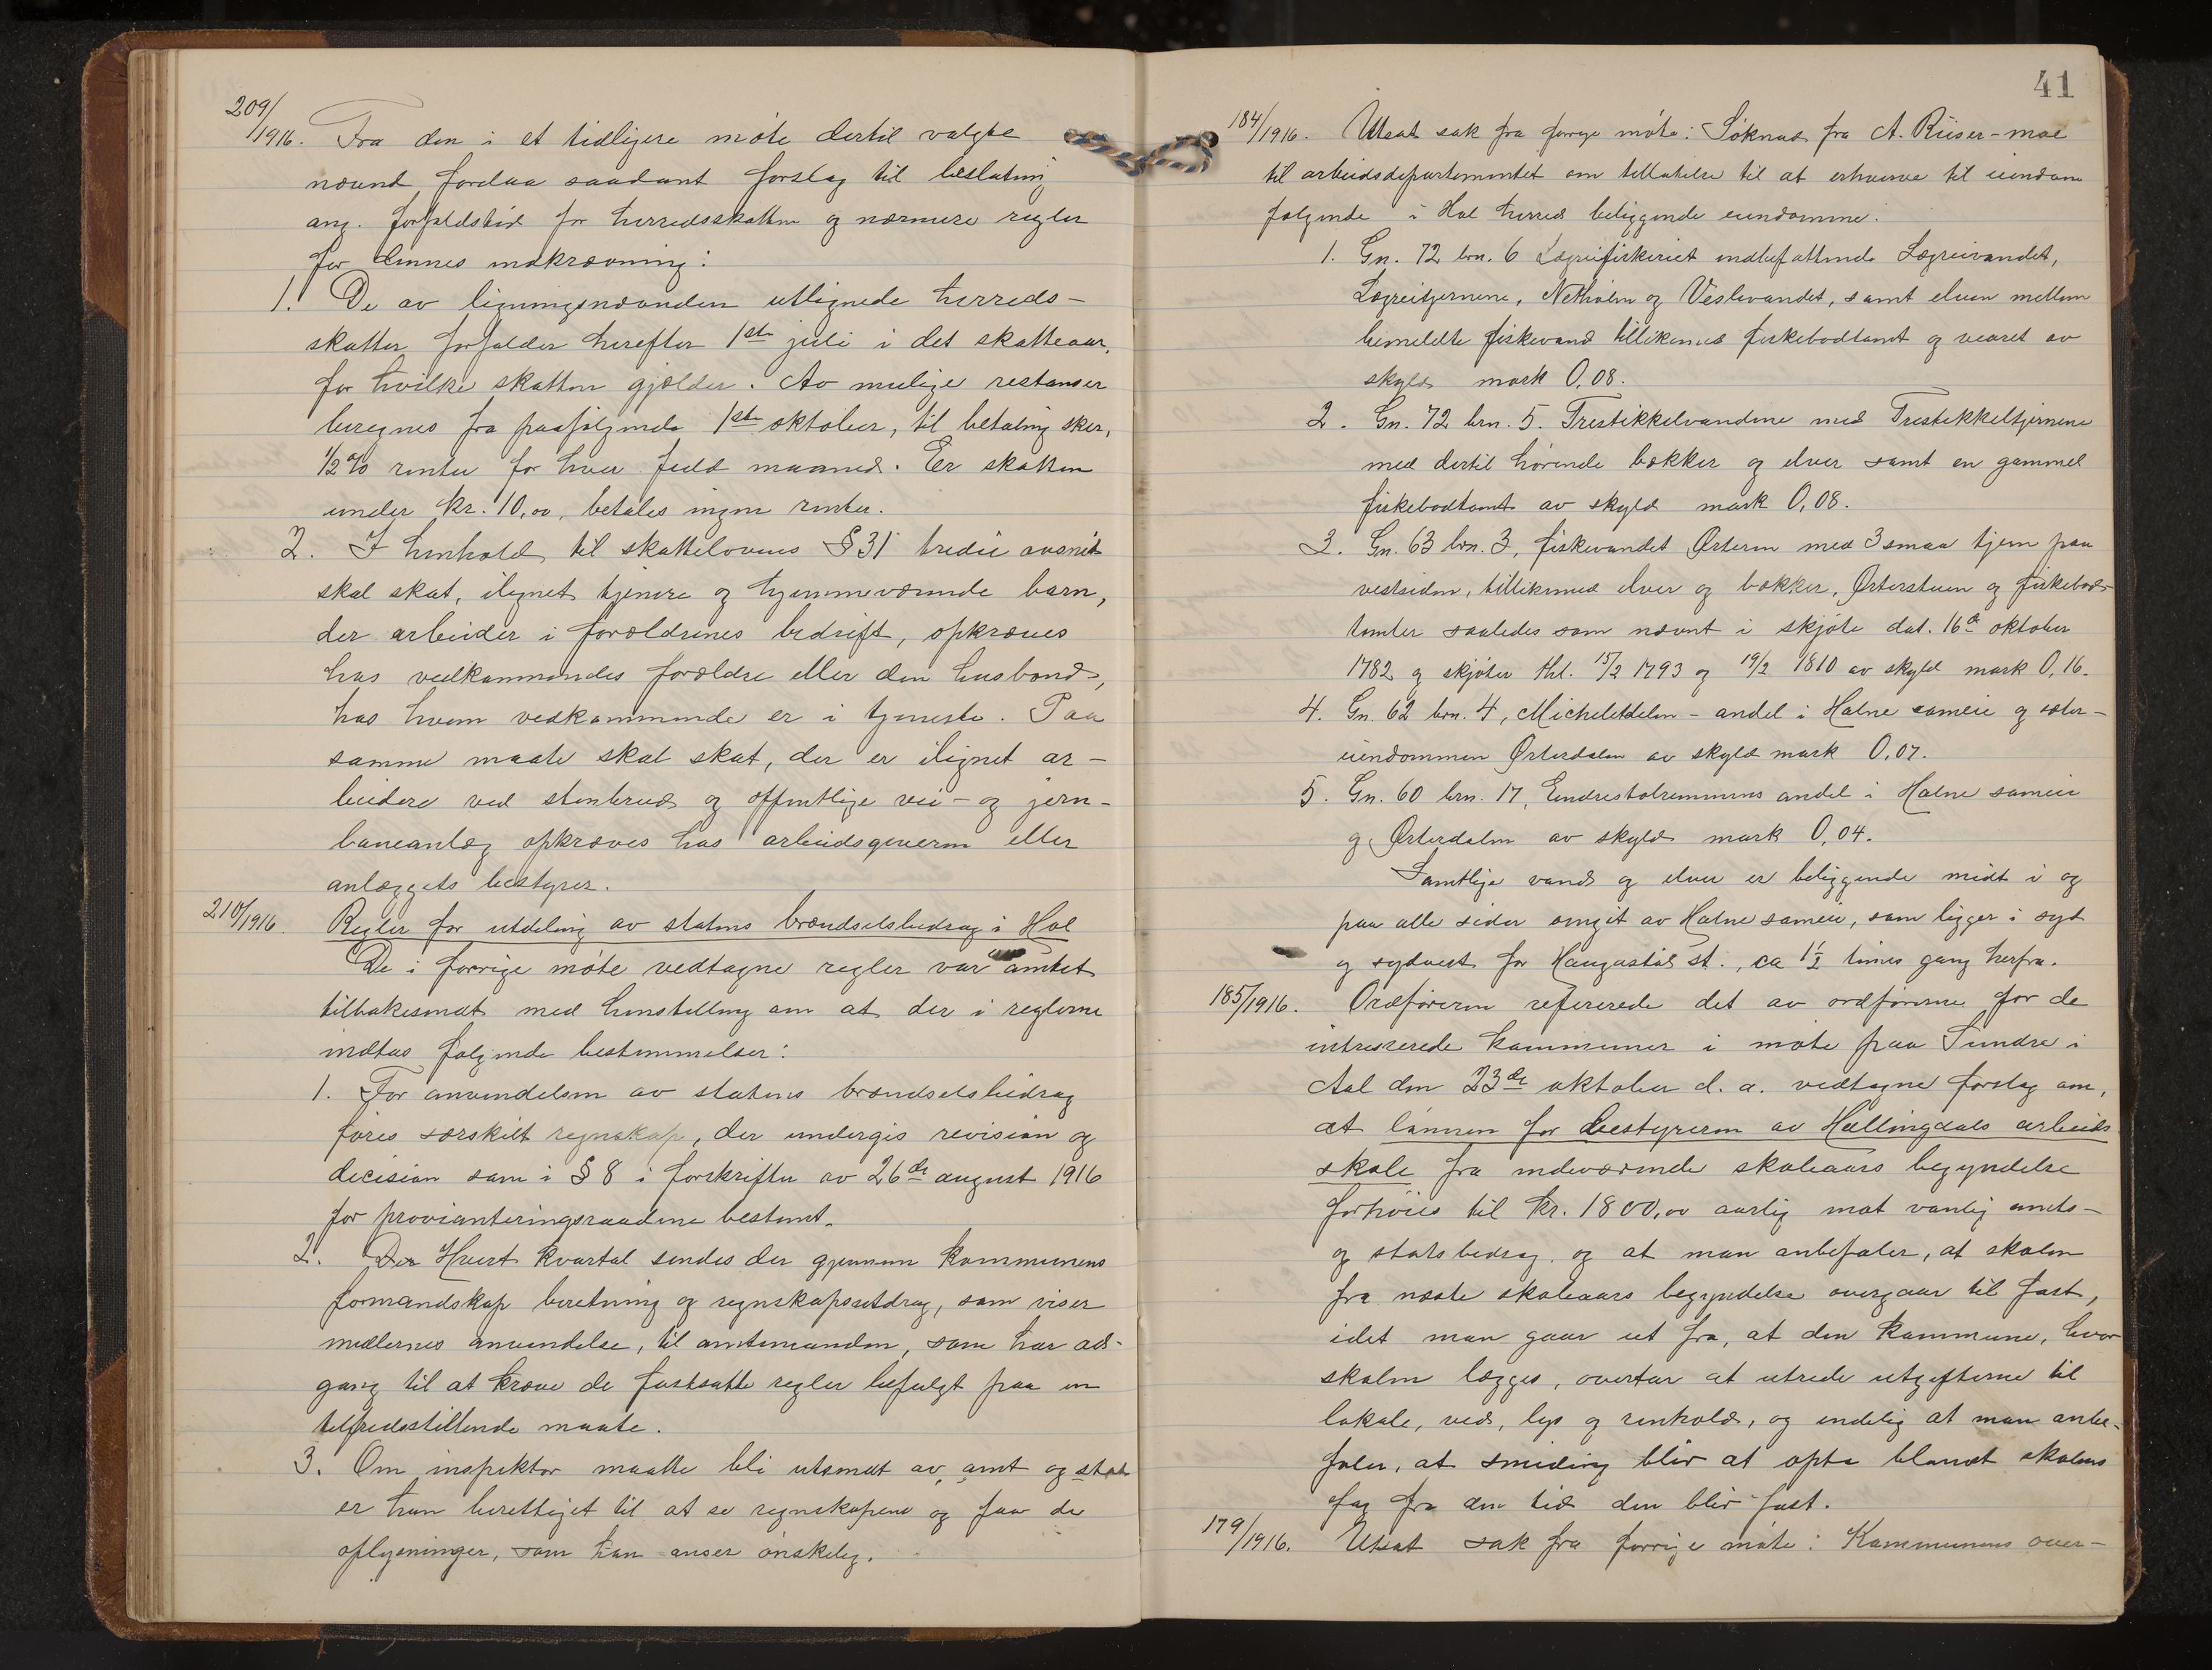 209/1916. Fra den i et tidligere møte dertil valgte
nævnd forelaa saadant forslag til beslutning
ang. forfaldstid for herredsskatten og nærmere regler
for dennes indkrævning:
1. De av ligningsnævnden utlignede herreds-
skatter forfalder herefter 1ste juli i det skatteaar,
for hvilke skatten gjælder. Av mulige restanser
beregnes fra paafølgende 1ste oktober, til betaling sker,
1/2 % renter for hver fuld maaned. Er skatten
under kr. 10,00, betales ingen renter.
2. I henhold til skattelovens § 31 tredie avsnit
skal skat, ilignet tjenere og hjemmeværende barn,
der arbeider i forældrenes bedrift, opkræves
hos vedkommendes forældre eller den husbond,
hos hvem vedkommende er i tjeneste. Paa
samme maate skal skat, der er ilignet ar-
beidere ved stenbrud og offentlige vei- og jern-
baneanlæg opkræves hos arbeidsgiveren eller
anlæggets bestyrer.
210/1916. Regler for utdeling av statens brændselsbidrag i Hol
De i forrige møte vedtagne regler var amtet
tilbakesendt med henstilling om at der i reglerne
indtas følgende bestemmelser:
1. For anvendelsen av statens brændselsbidrag
føres særskilt regnskap, der undergis revision og
decision som i § 8 i forskrifter av 26de august 1916
for provianteringsraadene bestemt.
2. Hvert kvartal sendes der gjennem kommunens
formandskap beretning og regnskapsutdrag, som viser
midlernes anvendelse, til amtmanden, som har ad-
gang til at kræve de fastsatte regler befulgt paa en
tilfredsstillende maate.
3. Om inspektør maatte bli utsendt av amt og stat
er han berettiget til at se regnskapene og faa de
oplysninger, som han anser ønskelig.
41
184/1916. Utsat sak fra forrige møte: Søknad fra A. Riiser-moe
til arbeidsdepartementet om tillatelse til at erhverve til eiendom
følgende i Hol herred beliggende eiendomme:
1. Gn. 72 brn. 6 Lægreifiskeriet indbefattende Lægreivandet,
Lægreitjernene, Netholm og Veslevandet, samt elven mellem
bemeldte fiskevand tillikemed fiskebodtomt og
skyld mark 0,08.
2. Gn. 72 brn. 5. Trestikkelvandene med Trestikkeltjernene
med dertil hørende bækker og elver samt en gammel
fiskebodtomt av skyld mark 0,08.
3. Gn. 63 brn. 3, fiskevandet Ørteren med 3 smaa tjern paa
vestsiden, tillikemed elver og bækker, Ørterstuen og fiskebod-
tomter saaledes som nævnt i skjøte dat. 16de oktober
1782 og skjøter thl. 15/2 1793 og 19/2 1810 av skyld mark 0,16.
4. Gn. 62 brn. 4, Micheletdelen - andel i Halne sameie og sæter-
eiendommen Ørterdalen av skyld mark 0,07.
5. Gn. 60 brn. 17, Endrestølremmens andel i Halne sameie
og Ørterdalen av skyld mark 0,04.
Samtlige vand og elver er beliggende midt i og
paa alle sider omgit av Halne sameie, som ligger i syd
og sydvest for Haugastøl st., ca 1 1/2 times gang herfra.
185/1916. Ordføreren refererede det av ordførerne for de
intresserede kommuner i møte paa Sundre i
Aal den 23de oktober d. a. vedtagne forslag om,
at lønnen for bestyreren av Hallingdals arbeids
skole fra indeværende skoleaars begyndelse
forhøies til kr. 1800,00 aarlig mot vanlig amts-
og statsbidrag og at man anbefaler, at skolen
fra næste skoleaars begyndelse overgaar til fast,
idet man gaar ut fra, at den kommune, hvor
skolen lægges, overtar at utrede utgifterne til
lokale, ved, lys og renhold, og endelig at man anbe-
faler, at smiding blir at opta blandt skolens
fag fra den tid den blir fast.
179/1916. Utsat sak fra forrige møte: Kommunens over-